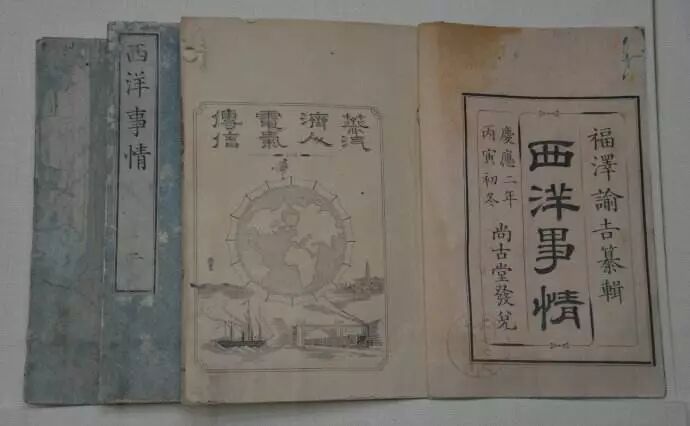 福澤諭吉纂輯
西洋事情
慶應二年
丙寅初冬
尚古堂發兌
蒸汽
濟人
電氣
傳信
西洋事情